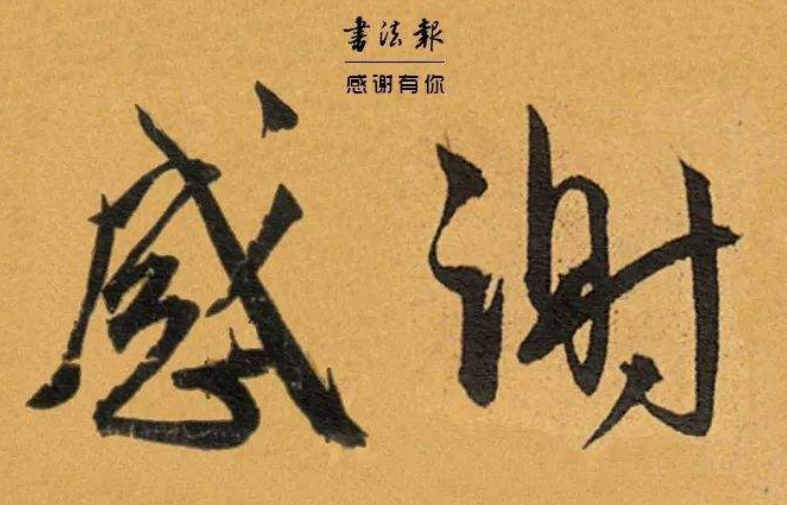 書法報
感谢有你
感谢